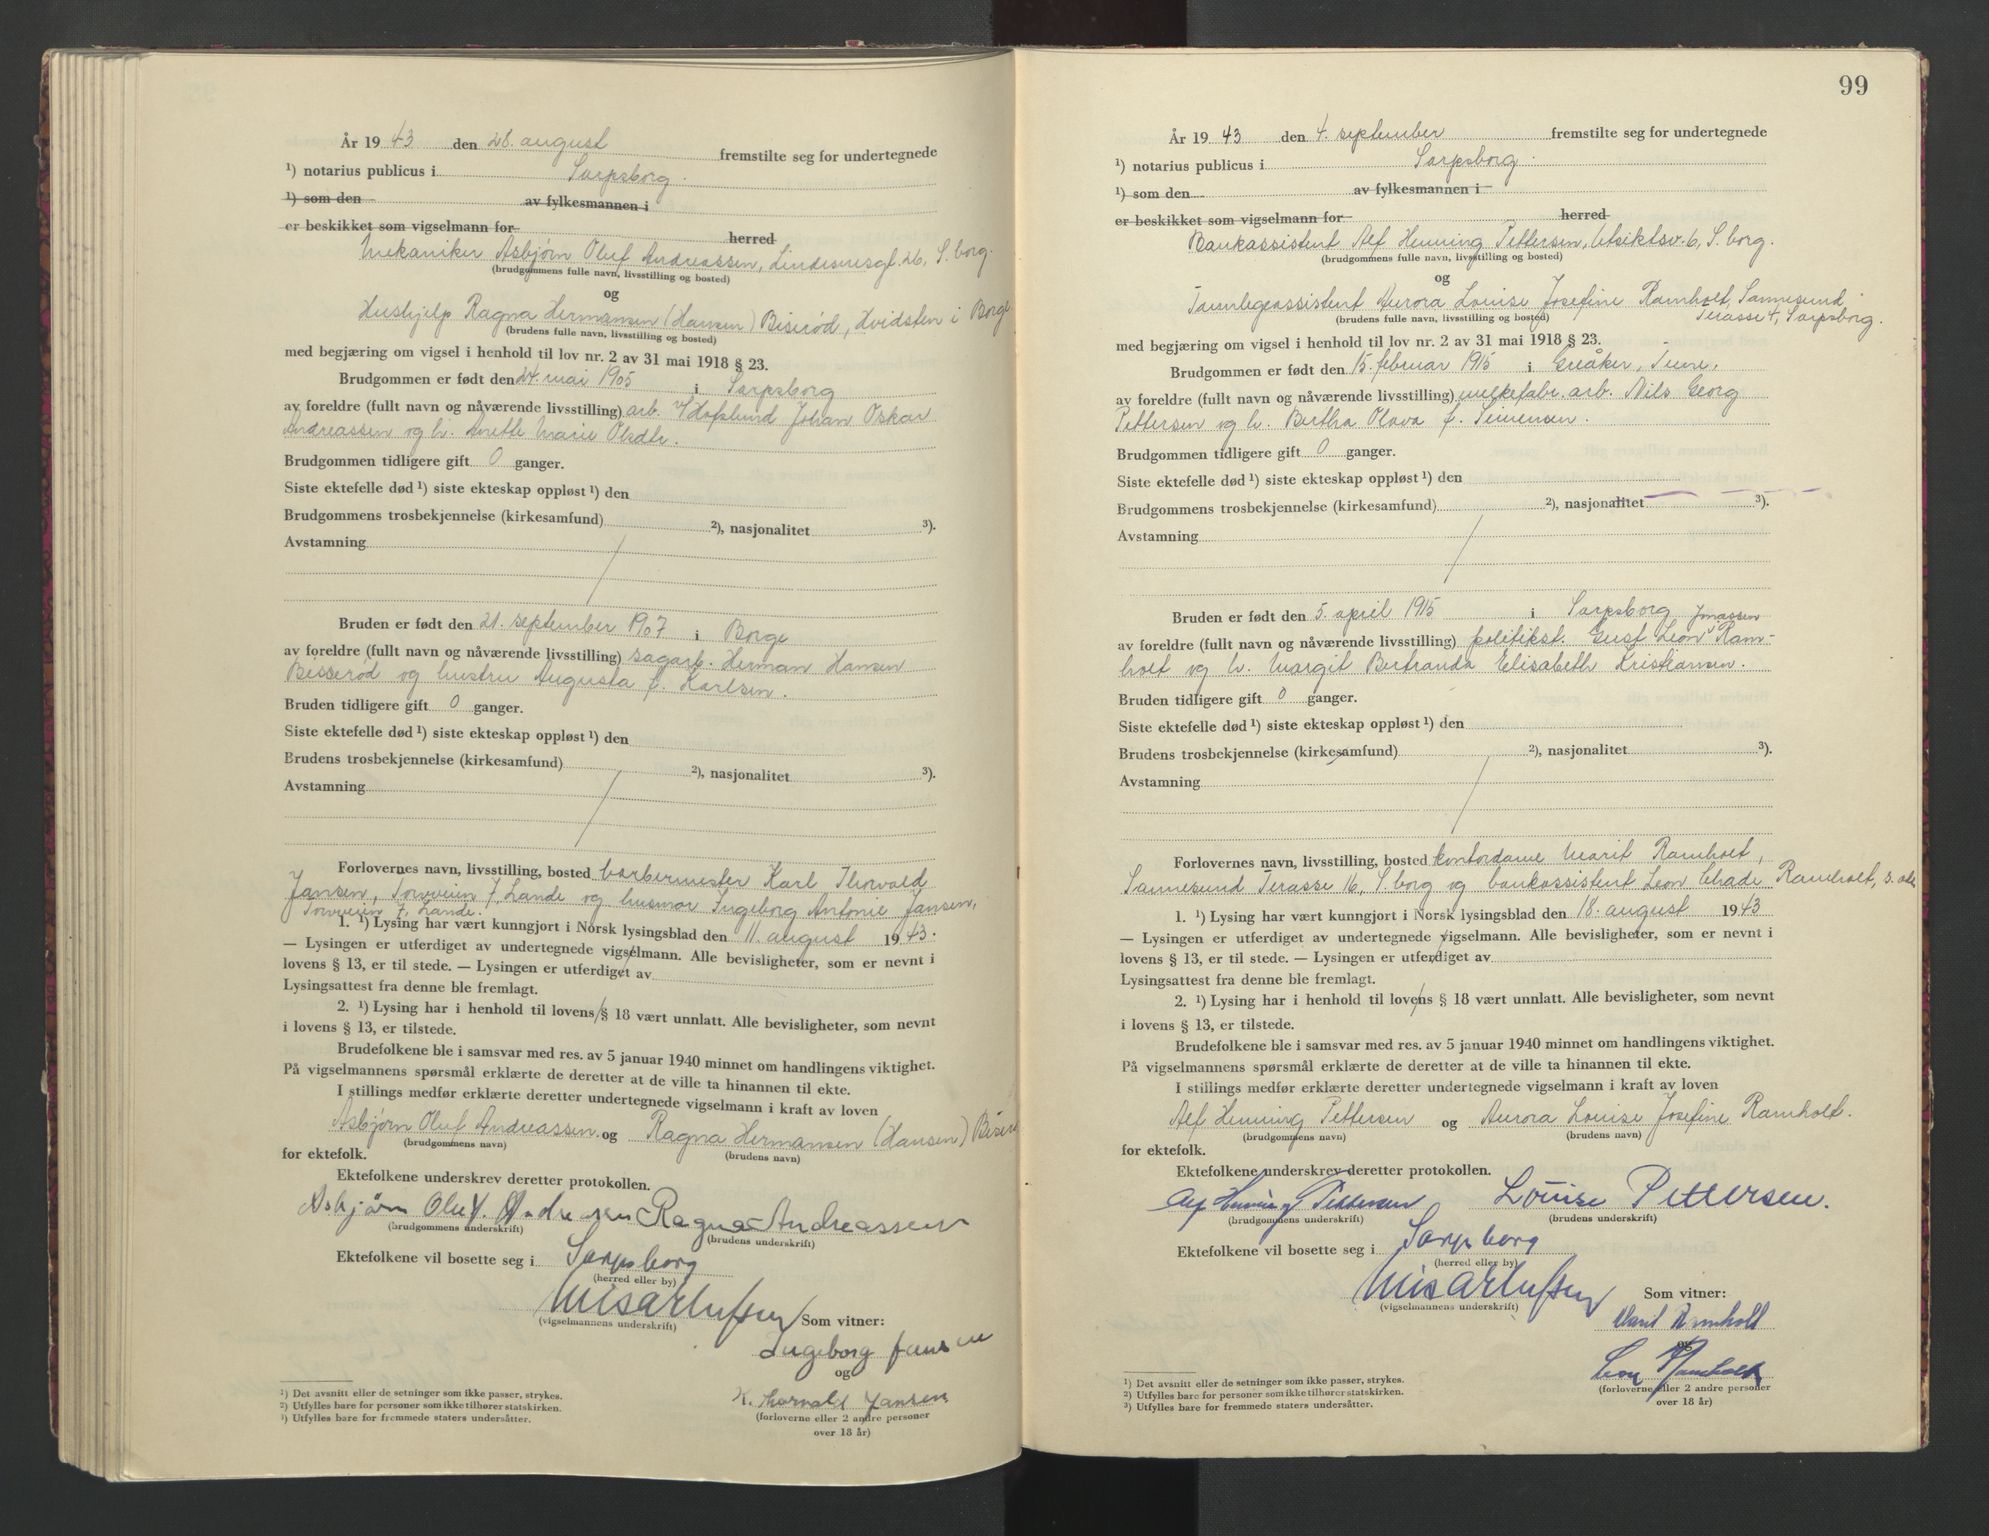 År 1943 den 28. august fremstilte seg for undertegnede
¹) notarius publicus i Sarpsborg.
¹) som den av fylkesmannen i
er beskikket som vigselmann for herred
Mekaniker Asbjørn Oluf Andreassen, Lindesnesgt. 26, S.borg.
(brudgommens fulle navn, livsstilling og bosted)
og
Hushjelp Ragna Hermansen (Hansen) Biserød, Hvidsten i Borge
(brudens fulle navn, livsstilling og bosted)
med begjæring om vigsel i henhold til lov nr. 2 av 31 mai 1918 § 23.
Brudgommen er født den 24. mai 1905 i Sarpsborg
av foreldre (fullt navn og nåværende livsstilling) arb. v/Hafslund Johan Oskar
Andreassen og h. Anette Marie Olsdtr.
Brudgommen tidligere gift 0 ganger.
Siste ektefelle død ¹) siste ekteskap oppløst ¹) den
Brudgommens trosbekjennelse (kirkesamfund) ²), nasjonalitet ³).
Avstamning
Bruden er født den 21. september 1907 i Borge
av foreldre (fullt navn og nåværende livsstilling) sagarb. Herman Hansen
Bisserød og hustru Augusta f. Karlsen.
Bruden tidligere gift 0 ganger.
Siste ektefelle død ¹) siste ekteskap oppløst ¹) den
Brudens trosbekjennelse (kirkesamfund) ²), nasjonalitet ³).
Avstamning
Forlovernes navn, livsstilling, bosted barbermester Karl Thorvald
Jansen, Torvveien 7, Lande og husmor Ingeborg Antonie Jansen,
Torvveien 7, Lande.
1. ¹) Lysing har vært kunngjort i Norsk lysingsblad den 11. august 1943.
— Lysingen er utferdiget av undertegnede vigselmann. Alle bevisligheter, som er nevnt i
lovens § 13, er til stede. — Lysingen er utferdiget av
Lysingsattest fra denne ble fremlagt.
2. ¹) Lysing har i henhold til lovens § 18 vært unnlatt. Alle bevisligheter, som nevnt
i lovens § 13, er tilstede.
Brudefolkene ble i samsvar med res. av 5 januar 1940 minnet om handlingens viktighet.
På vigselmannens spørsmål erklærte de deretter at de ville ta hinannen til ekte.
I stillings medfør erklærte deretter undertegnede vigselmann i kraft av loven
Asbjørn Oluf Andreassen og Ragna Hermansen (Hansen)
(brudgommens navn) (brudens navn)
for ektefolk.
Ektefolkene underskrev deretter protokollen.
Asbjørn Oluf Andreassen Ragna Andreassen
(brudgommens underskrift) (brudens underskrift)
Ektefolkene vil bosette seg i Sarpsborg
(herred eller by)
(vigselmannens underskrift) Som vitner:
Ingeborg Jansen
og
K. Thorvald Jansen
(forloverne eller 2 andre personer
over 18 år)
¹) Det avsnitt eller de setninger som ikke passer, strykes.
²) Utfylles bare for personer som ikke tilhører statskirken.
³) Utfylles bare for fremmede staters undersåtter.
99
År 1943 den 4. september fremstilte seg for undertegnede
¹) notarius publicus i Sarpsborg.
¹) som den av fylkesmannen i
er beskikket som vigselmann for herred
Bankassistent Alf Henning Pettersen, Utsiktsv. 6, S.borg.
(brudgommens fulle navn, livsstilling og bosted)
og
Tannlegeassistent Aurora Louise Josefine Ramholt, Sannesund
Terasse 4, Sarpsborg.
(brudens fulle navn, livsstilling og bosted)
med begjæring om vigsel i henhold til lov nr. 2 av 31 mai 1918 § 23.
Brudgommen er født den 15. februar 1915 i Greåker, Tune.
av foreldre (fullt navn og nåværende livsstilling) melkefabr. arb. Nils Georg
Pettersen og h. Bertha Olava f. Simensen.
Brudgommen tidligere gift 0 ganger.
Siste ektefelle død ¹) siste ekteskap oppløst ¹) den
Brudgommens trosbekjennelse (kirkesamfund) ²), nasjonalitet ³).
Avstamning
Bruden er født den 5. april 1915 i Sarpsborg
Jonassen
av foreldre (fullt navn og nåværende livsstilling) politikst. Gust Leon Ram-
holt og h. Margit Bertranda Elisabeth Kristiansen.
Bruden tidligere gift 0 ganger.
Siste ektefelle død ¹) siste ekteskap oppløst ¹) den
Brudens trosbekjennelse (kirkesamfund) ²), nasjonalitet ³).
Avstamning
Forlovernes navn, livsstilling, bosted kontordame Marit Ramholt,
Sannesund Terasse 16, S.borg og bankassistent Leon Ramholt, s.
1. ¹) Lysing har vært kunngjort i Norsk lysingsblad den 18. august 1943
— Lysingen er utferdiget av undertegnede vigselmann. Alle bevisligheter, som er nevnt i
lovens § 13, er til stede. — Lysingen er utferdiget av
Lysingsattest fra denne ble fremlagt.
2. ¹) Lysing har i henhold til lovens § 18 vært unnlatt. Alle bevisligheter, som nevnt
i lovens § 13, er tilstede.
Brudefolkene ble i samsvar med res. av 5 januar 1940 minnet om handlingens viktighet.
På vigselmannens spørsmål erklærte de deretter at de ville ta hinannen til ekte.
I stillings medfør erklærte deretter undertegnede vigselmann i kraft av loven
Alf Henning Pettersen og Aurora Louise Josefine Ramholt.
(brudgommens navn) (brudens navn)
for ektefolk.
Ektefolkene underskrev deretter protokollen.
Alf Henning Pettersen Louise Pettersen.
(brudgommens underskrift) (brudens underskrift)
Ektefolkene vil bosette seg i Sarpsborg
(herred eller by)
(vigselmannens underskrift) Som vitner:
Marit Ramholt
og
Leon Ramholt
(forloverne eller 2 andre personer
over 18 år)
¹) Det avsnitt eller de setninger som ikke passer, strykes.
²) Utfylles bare for personer som ikke tilhører statskirken.
³) Utfylles bare for fremmede staters undersåtter.